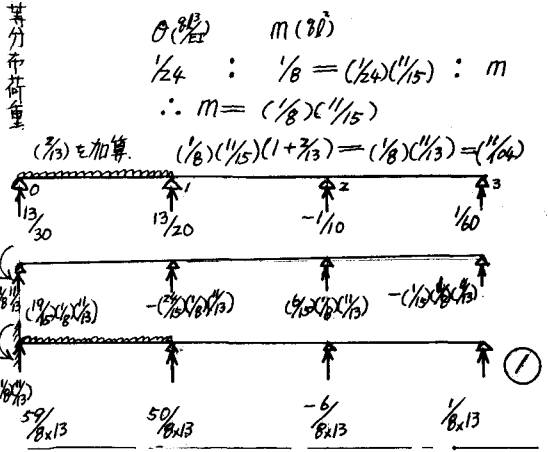 等分布荷重
θ(ql³/EI) m(ql²)
1/24 : 1/8 = (1/24)(11/15) : m
∴ m = (1/8)(11/15)
(2/13)を加算. (1/8)(11/15)(1+2/13) = (1/8)(11/13) = (11/104)
0 1 2 3
13/30 13/20 -1/10 1/60
1/8 11/13 (19/15)(1/8)(11/13) -(24/15)(1/8)(11/13) (6/15)(1/8)(11/13) -(1/15)(1/8)(11/13)
①
1/8(11/13)
59/8×13 50/8×13 -6/8×13 1/8×13